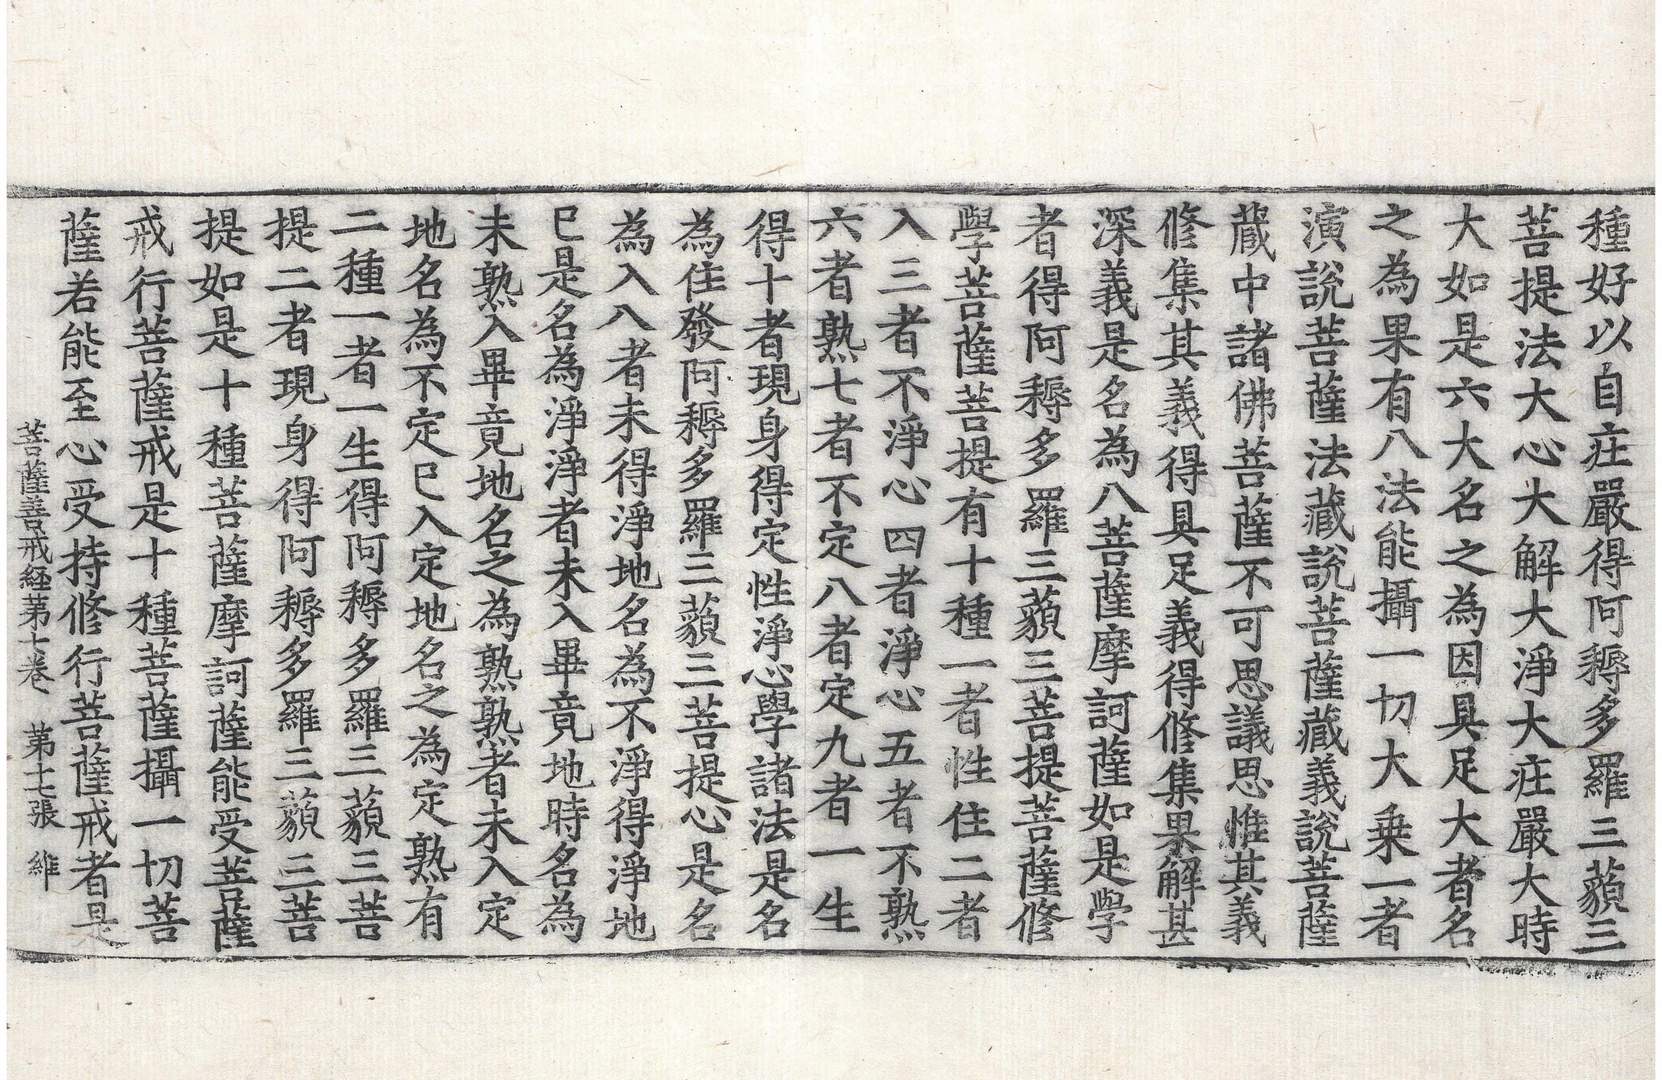 種好以自庄嚴得阿耨多羅三藐三
菩提法大心大解大淨大庄嚴大時
大如是六大名之為因具足大者名
之為果有八法能攝一切大乗一者
演說菩薩法藏說菩薩藏義說菩薩
藏中諸佛菩薩不可思議思惟其義
修集其義得具足義得修集果解甚
深義是名為八菩薩摩訶薩如是學
者得阿耨多羅三藐三菩提菩薩修
學菩薩菩提有十種一者性住二者
入三者不淨心四者淨心五者不熟
六者熟七者不定八者定九者一生
得十者現身得定性淨心學諸法是名
為住發阿耨多羅三藐三菩提心是名
為入入者未得淨地名為不淨得淨地
已是名為淨淨者未入畢竟地時名為
未熟入畢竟地名之為熟熟者未入定
地名為不定已入定地名之為定熟有
二種一者一生得阿耨多羅三藐三菩
提二者現身得阿耨多羅三藐三菩
提如是十種菩薩摩訶薩能受菩薩
戒行菩薩戒是十種菩薩攝一切菩
薩若能至心受持修行菩薩戒者是
菩薩善戒経第十卷 第七張 維